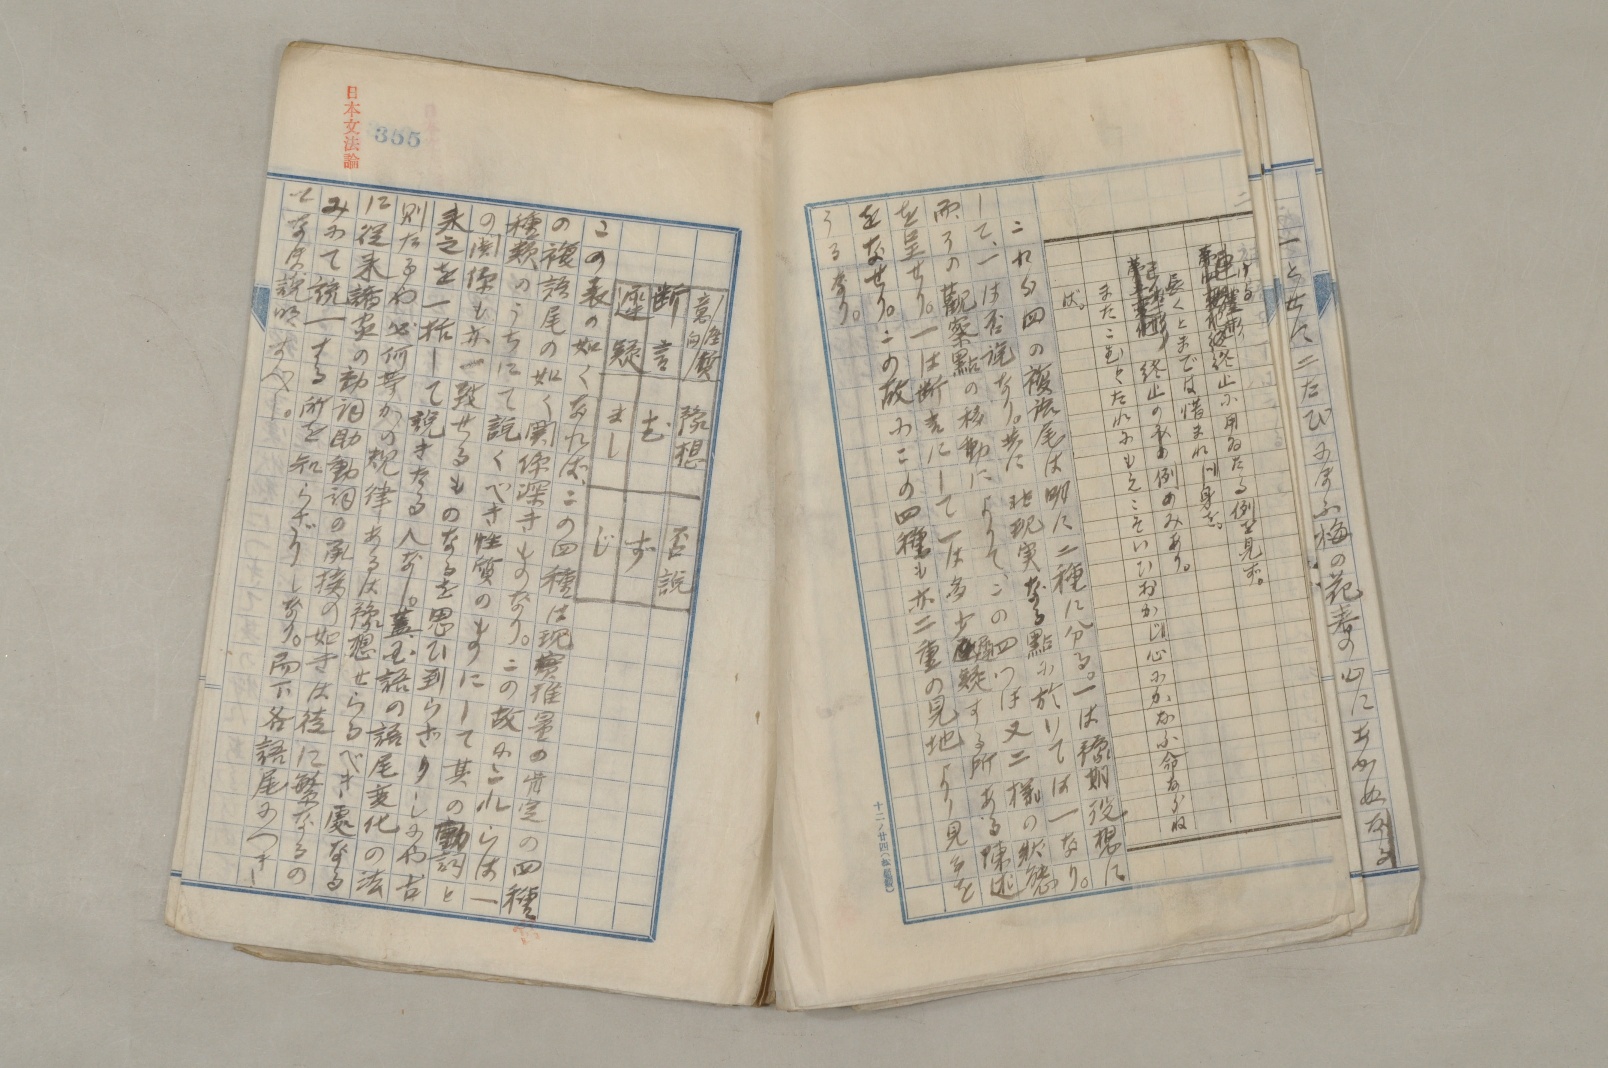 一とせに二たびにほふ梅の花春の心にあかぬなる
連體形
終止に用ゐたる例を見ず。
長くとまでは惜まれ川身を。
已然形、終止のみの例のみあり。
またこむといひおか 心にかなふ命ならね
ば。
これら四の複語尾は明に二種に分る。一は豫期役想に
して、一は否説なり。共に非現実なる點に於いては一なり。
而、その觀察點の移動によりて、この四つは又二様の状態
を呈せり。一は断言にして一は多少遲疑する所ある陳述
をなせり。この故にこの四種も亦二重の見地より見るを
うるなり。
十二ノ廿四
日本文法論
355
性質
意向
豫想
否説
断言
む
ず
遲疑
まし
じ
この表の如くなれば、この四種は現實推量の
の複語尾の如く関係深きものなり。この故にこれらは一
種類のうちにて説くべき性質のものにして其の動詞と
の関係も亦一致せるものなるを思ひ到らざりしにや古
來之を一括して説きたる人なし。蓋、国語の語尾變化の法
則たるや必何等かの規律あるは豫想せらるべき處なる
に從来諸家の動詞助動詞の承接の如きは徒に繁なるの
みにて統一する所を知らざりしなり。而下各語尾につき
せなほ説明すべし。